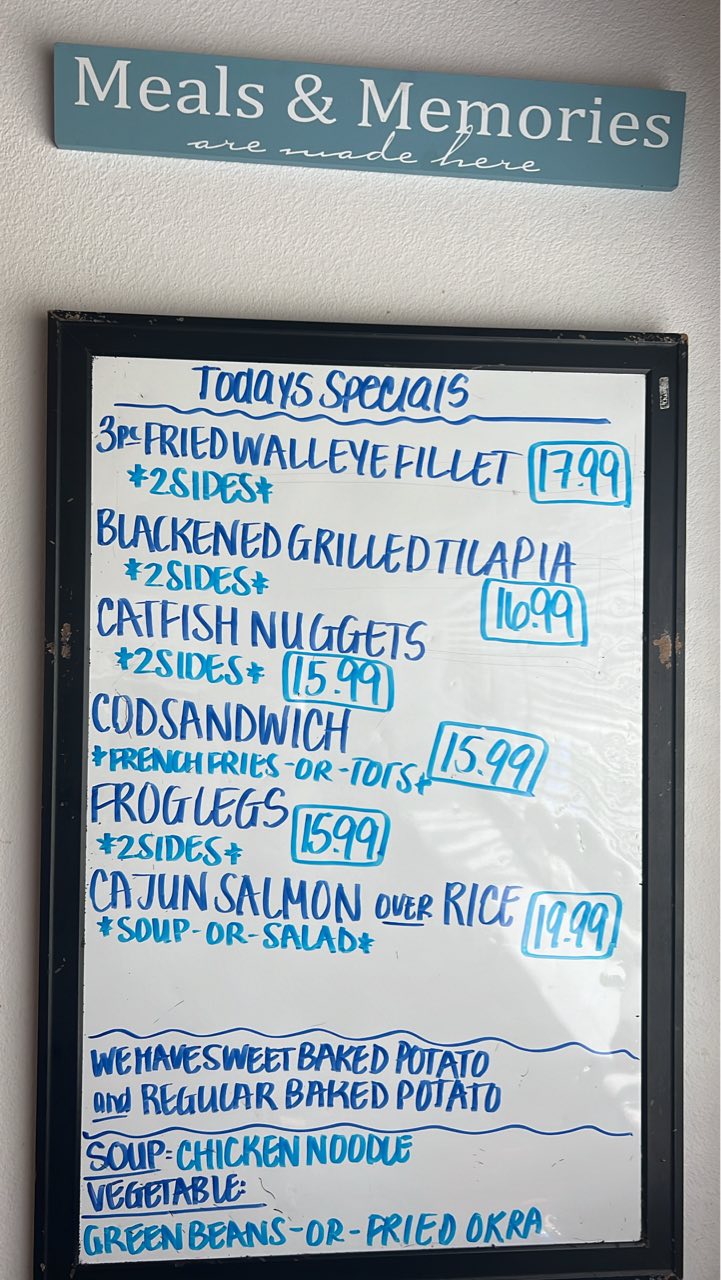 Meals & Memories
are made here
Todays Specials
3pc FRIED WALLEYE FILLET 17.99
*2 SIDES*
BLACKENED GRILLED TILAPIA
*2 SIDES* 16.99
CATFISH NUGGETS
*2 SIDES* 15.99
COD SANDWICH
*FRENCH FRIES-OR-TOTS* 15.99
FROG LEGS
*2 SIDES* 15.99
CAJUN SALMON OVER RICE 19.99
*SOUP-OR-SALAD*
WE HAVE SWEET BAKED POTATO
and REGULAR BAKED POTATO
SOUP: CHICKEN NOODLE
VEGETABLE:
GREEN BEANS-OR-FRIED OKRA